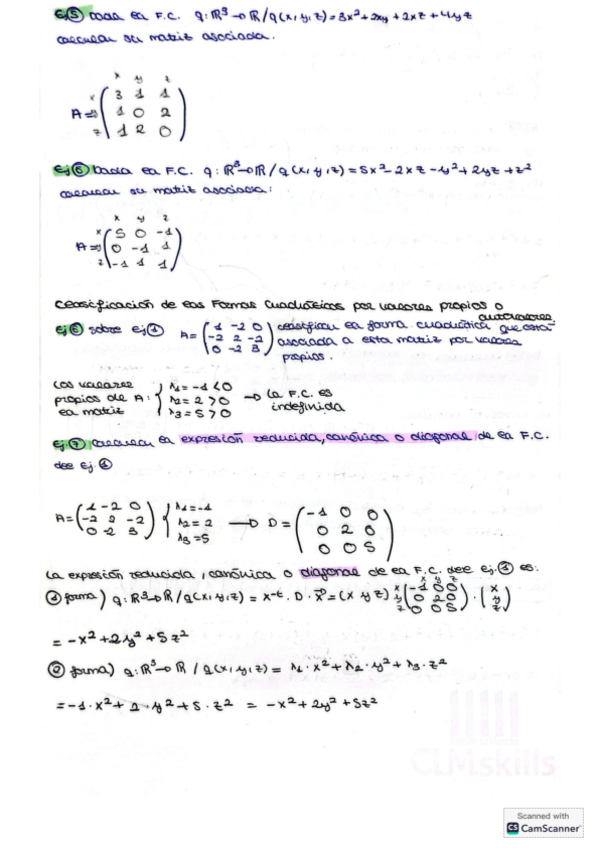 Ej(5) Dada la F.C. q: ℝ³→ℝ / q(x,y,z) = 3x²+2xy+2xz+4yz
calcular su matriz asociada.
x y z
A => x ( 3 1 1
y 1 0 2
z 1 2 0 )
Ej(6) Dada la F.C. q: ℝ³→ℝ / q(x,y,z) = 5x²-2xz-y²+2yz+z²
calcular su matriz asociada:
x y z
A => x ( 5 0 -1
y 0 -1 1
z -1 1 1 )
Clasificación de las Formas Cuadráticas por valores propios o
autovalores.
Ej(6) sobre Ej(1) A = ( 1 -2 0 / -2 2 -2 / 0 -2 3 ) clasificar la forma cuadrática que está
asociada a esta matriz por valores
propios.
Los valores
propios de A:
la matriz
{ λ1 = -1 < 0
λ2 = 2 > 0
λ3 = 5 > 0
→ La F.C. es
indefinida
Ej(7) calcular la expresión reducida, canónica o diagonal de la F.C.
del Ej.(1)
A = ( 1 -2 0 / -2 2 -2 / 0 -2 3 ) { λ1 = -1 / λ2 = 2 / λ3 = 5 → D = ( -1 0 0 / 0 2 0 / 0 0 5 )
La expresión reducida, canónica o diagonal de la F.C. del Ej.(1) es:
(1) forma) q: ℝ³→ℝ / q(x,y,z) = x^t · D · x⃗ = (x y z) ( -1 0 0 / 0 2 0 / 0 0 5 ) · ( x / y / z )
= -x²+2y²+5z²
(2) forma) q: ℝ³→ℝ / q(x,y,z) = λ1·x²+λ2·y²+λ3·z²
= -1·x²+2·y²+5·z² = -x²+2y²+5z²
CLMskills
Scanned with
CS CamScanner